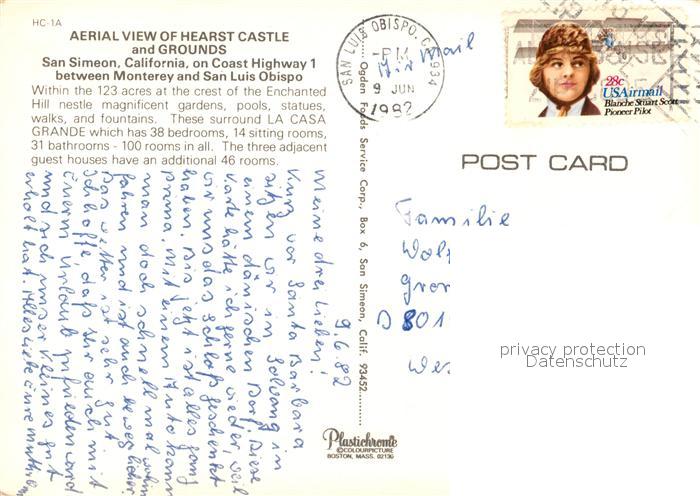 HC-1A
AERIAL VIEW OF HEARST CASTLE
and GROUNDS
San Simeon, California, on Coast Highway 1
between Monterey and San Luis Obispo
Within the 123 acres at the crest of the Enchanted
Hill nestle magnificent gardens, pools, statues,
walks, and fountains. These surround LA CASA
GRANDE which has 38 bedrooms, 14 sitting rooms,
31 bathrooms - 100 rooms in all. The three adjacent
guest houses have an additional 46 rooms.
9.6.82
Meine drei Lieben!
Kurz vor Santa Barbara
sitzen wir in Solvang in
einem dänischen Dorf. Diese
Karte hätte ich gerne wieder, weil
wir uns das Schloß geschenkt
haben. Bis jetzt ist alles ganz
prima. Mit einem Auto kann
man doch schnell mal wohin
fahren und ist auch beweglicher.
Das Wetter ist sehr gut.
Ich hoffe, daß Ihr auch mit
Eurem Urlaub zufrieden ward
und sich unser Kleines gut
erholt hat. Alles Liebe Eure
Ogden Foods Service Corp., Box 6, San Simeon, Calif. 93452
Plastichrome
©COLOURPICTURE
BOSTON, MASS. 02130
SAN LUIS OBISPO, CA 934
-PM
9 JUN
1982
Air Mail
28c
USAirmail
Blanche Stuart Scott
Pioneer Pilot
POST CARD
Familie
D 801
privacy protection
Datenschutz